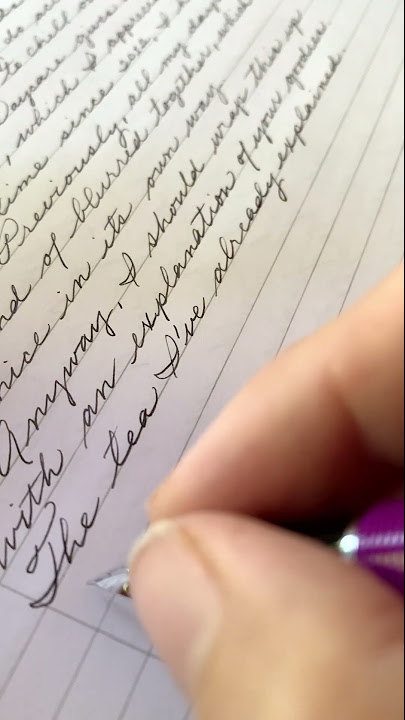 to chill
Daycare
, which I
time since
Previously, all my days
nd of blurred together, which
nice in its own way
Anyway, I should wrap this up
with an explanation of your goodies
The tea I've already explained.